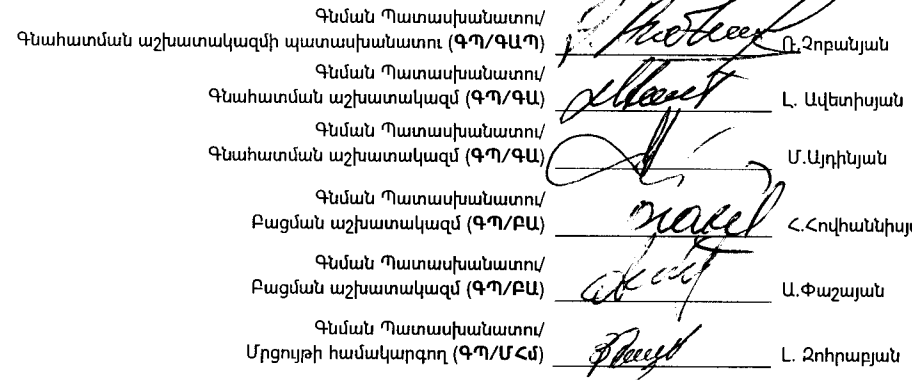 Գնման Պատասխանատու/
Գնահատման աշխատակազմի պատասխանատու (ԳՊ/ԳԱՊ) Ռ.Չոբանյան
Գնման Պատասխանատու/
Գնահատման աշխատակազմ (ԳՊ/ԳԱ) Լ. Ավետիսյան
Գնման Պատասխանատու/
Գնահատման աշխատակազմ (ԳՊ/ԳԱ) Մ.Այդինյան
Գնման Պատասխանատու/
Բացման աշխատակազմ (ԳՊ/ԲԱ) Հ.Հովհաննիսյ
Գնման Պատասխանատու/
Բացման աշխատակազմ (ԳՊ/ԲԱ) Ա.Փաշայան
Գնման Պատասխանատու/
Մրցույթի համակարգող (ԳՊ/ՄՀմ) Լ. Զոհրաբյան